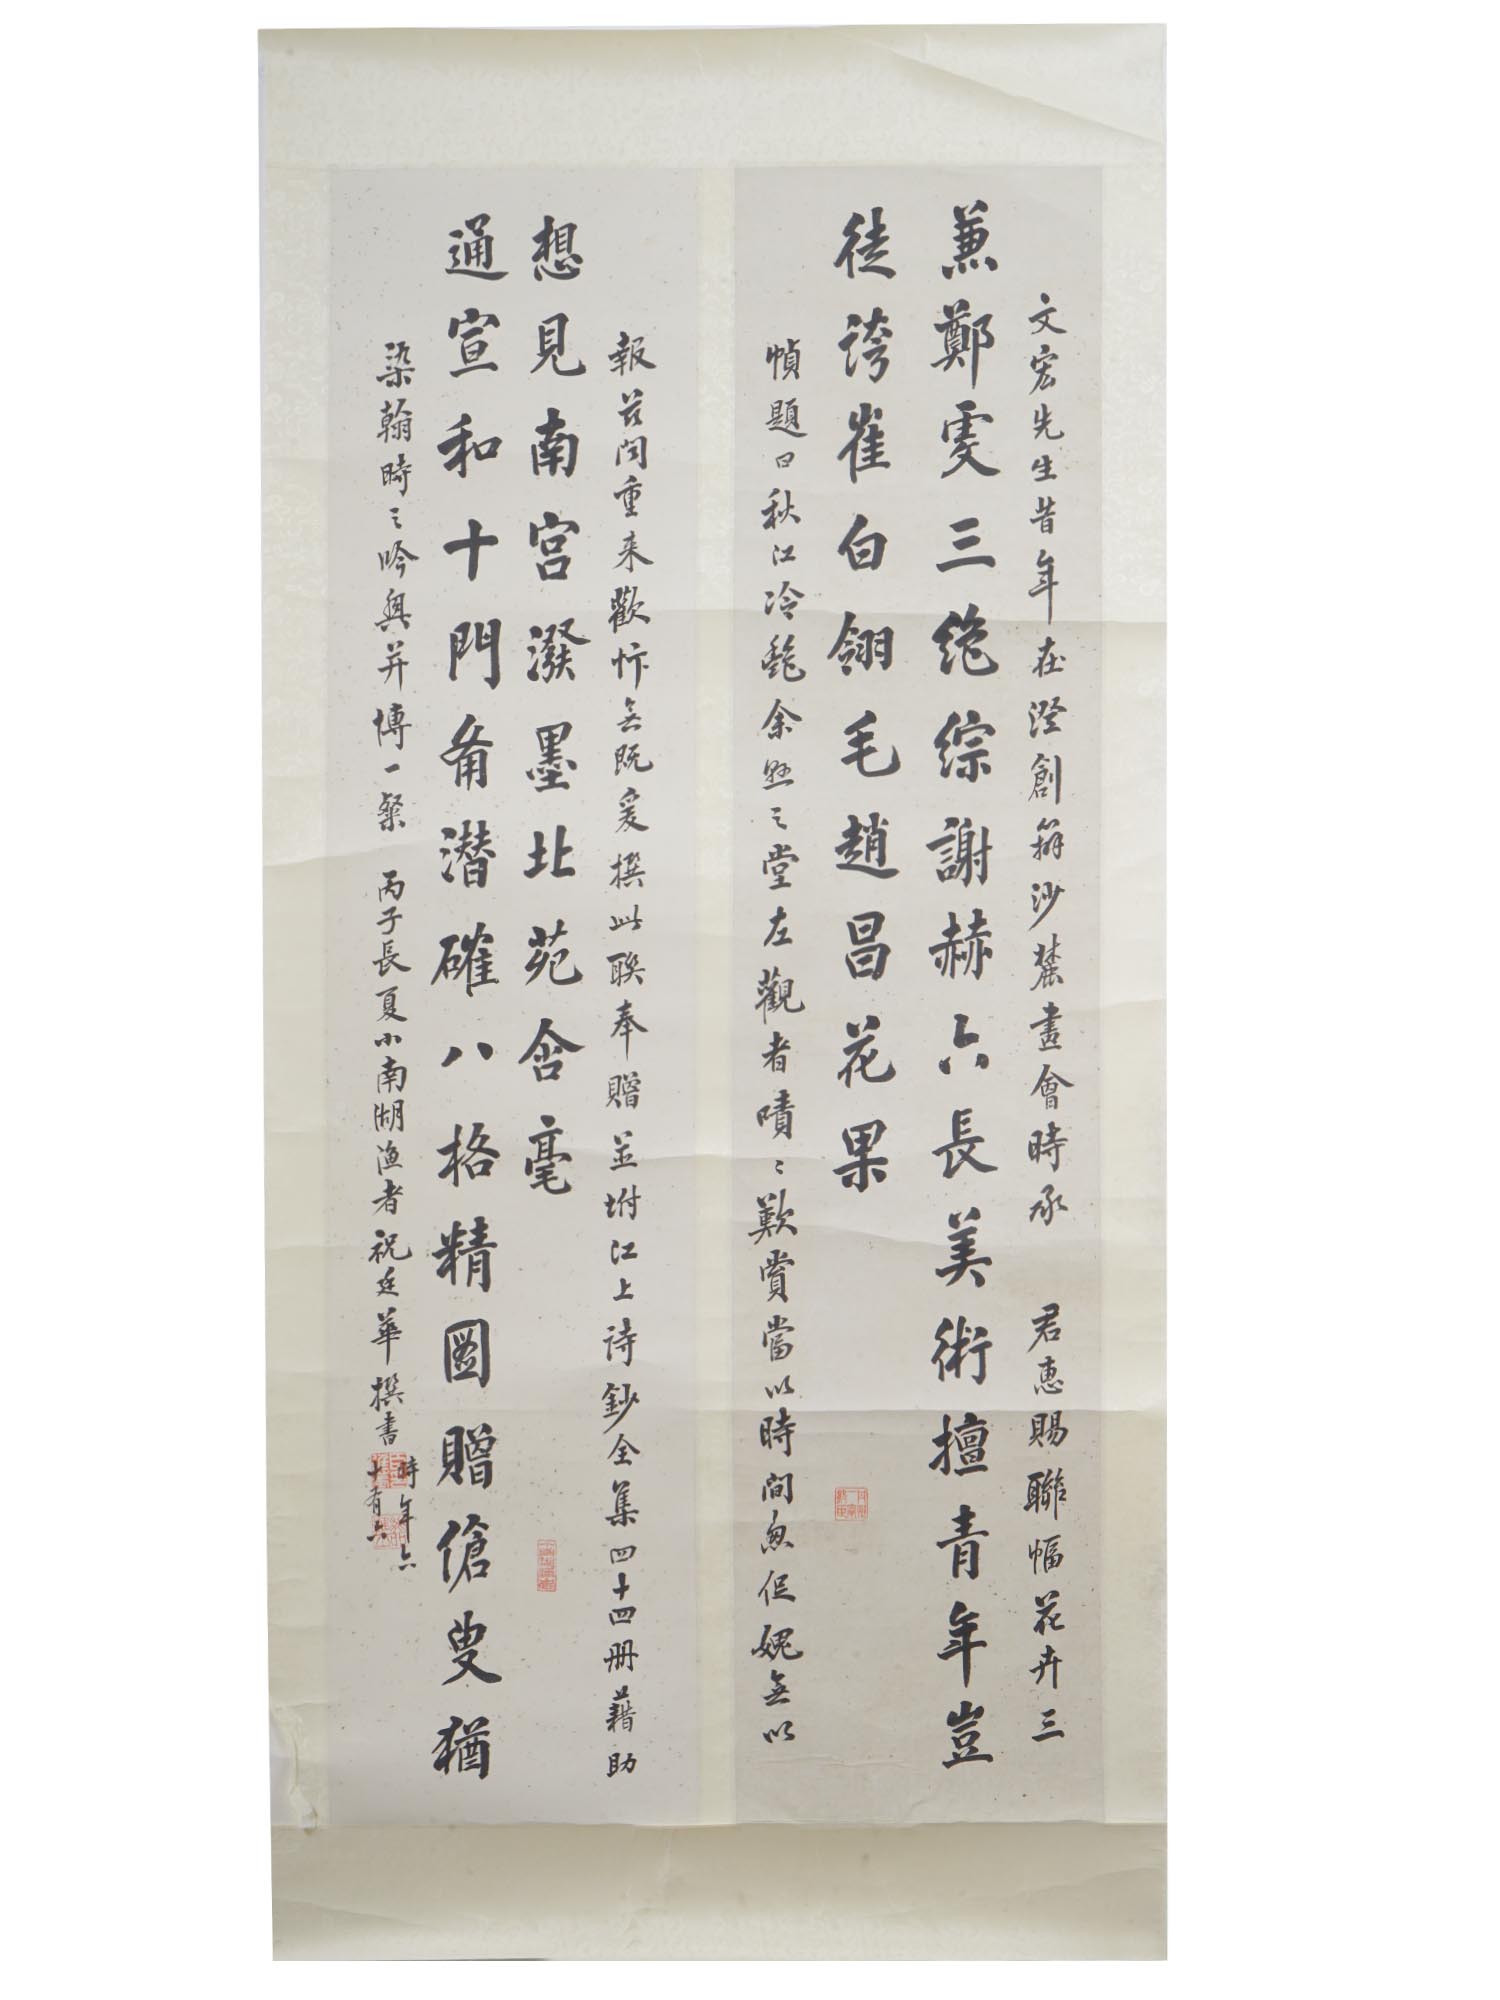 文宏先生昔年在澄創辦沙麓畫會時承　君惠賜聯幅花卉三
兼鄭虔三絕綜謝赫六長美術擅青年豈
徒誇崔白翎毛趙昌花果
幀題曰秋江冷艷余懸之堂左觀者嘖〻歎賞當以時間匆促媿無以
報茲聞重来歡忭無既爰撰此聯奉贈並坿江上詩鈔全集四十四冊藉助
想見南宮潑墨北苑含毫
通宣和十門肴潛確八格精図贈傖叟猶
染翰時之吟興并博一粲　丙子長夏小南湖漁者祝廷華撰書
時年六
十有六